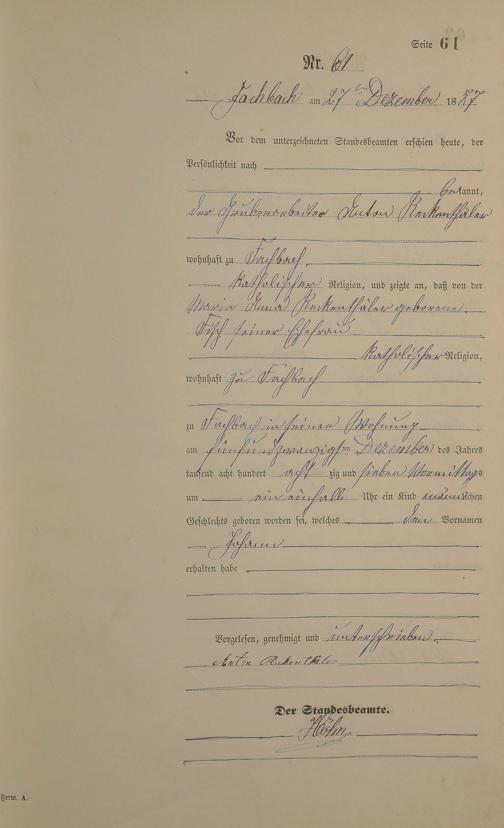 Seite 61
Nr. 61
Fachbach am 27ten Dezember 1887
Vor dem unterzeichneten Standesbeamten erschien heute, der
Persönlichkeit nach
bekannt,
der Grubenarbeiter Anton Reckenthäler
wohnhaft zu Fachbach
katholischer Religion, und zeigte an, daß von der
Maria Anna Reckenthäler geborene
Fisch seiner Ehefrau
katholischer Religion,
wohnhaft zu Fachbach
zu Fachbach in seiner Wohnung
am fünfundzwanzigsten Dezember des Jahres
tausend acht hundert achtzig und sieben Vormittags
um ein einhalb Uhr ein Kind männlichen
Geschlechts geboren worden sei, welches den Vornamen
Johann
erhalten habe
Vorgelesen, genehmigt und unterschrieben
Anton Reckenthäler
Der Standesbeamte.
Höhn
Form. A.